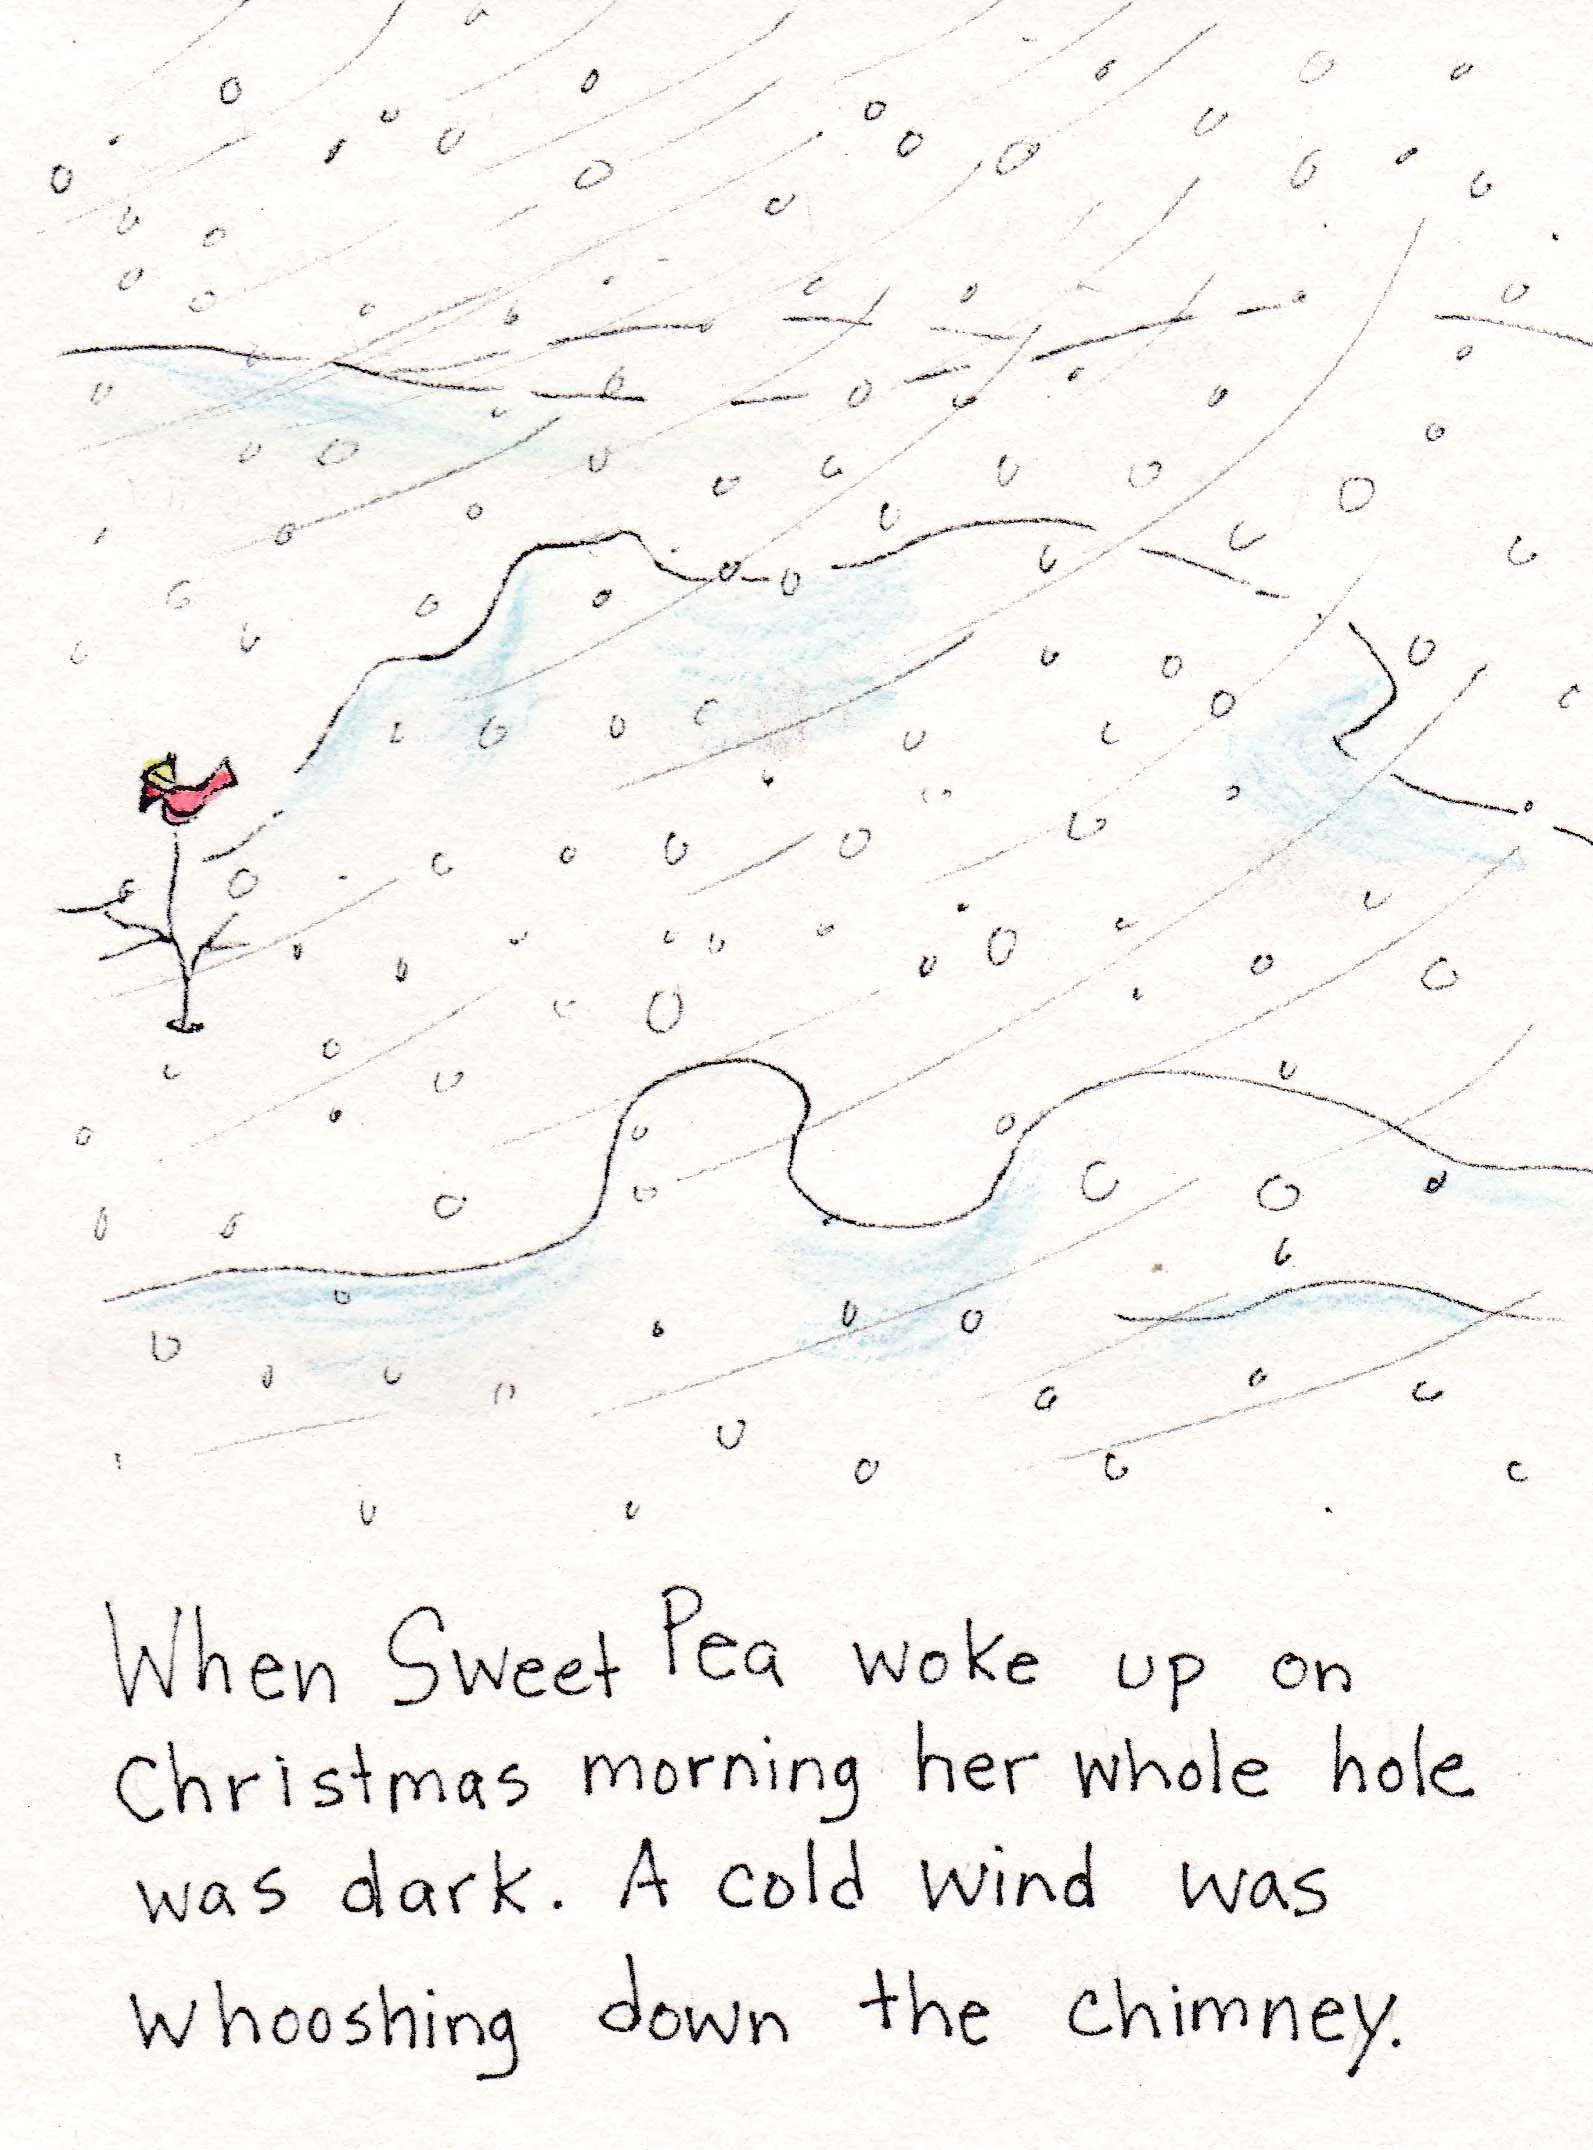 When Sweet Pea woke up on
Christmas morning her whole hole
was dark. A cold wind was
whooshing down the chimney.